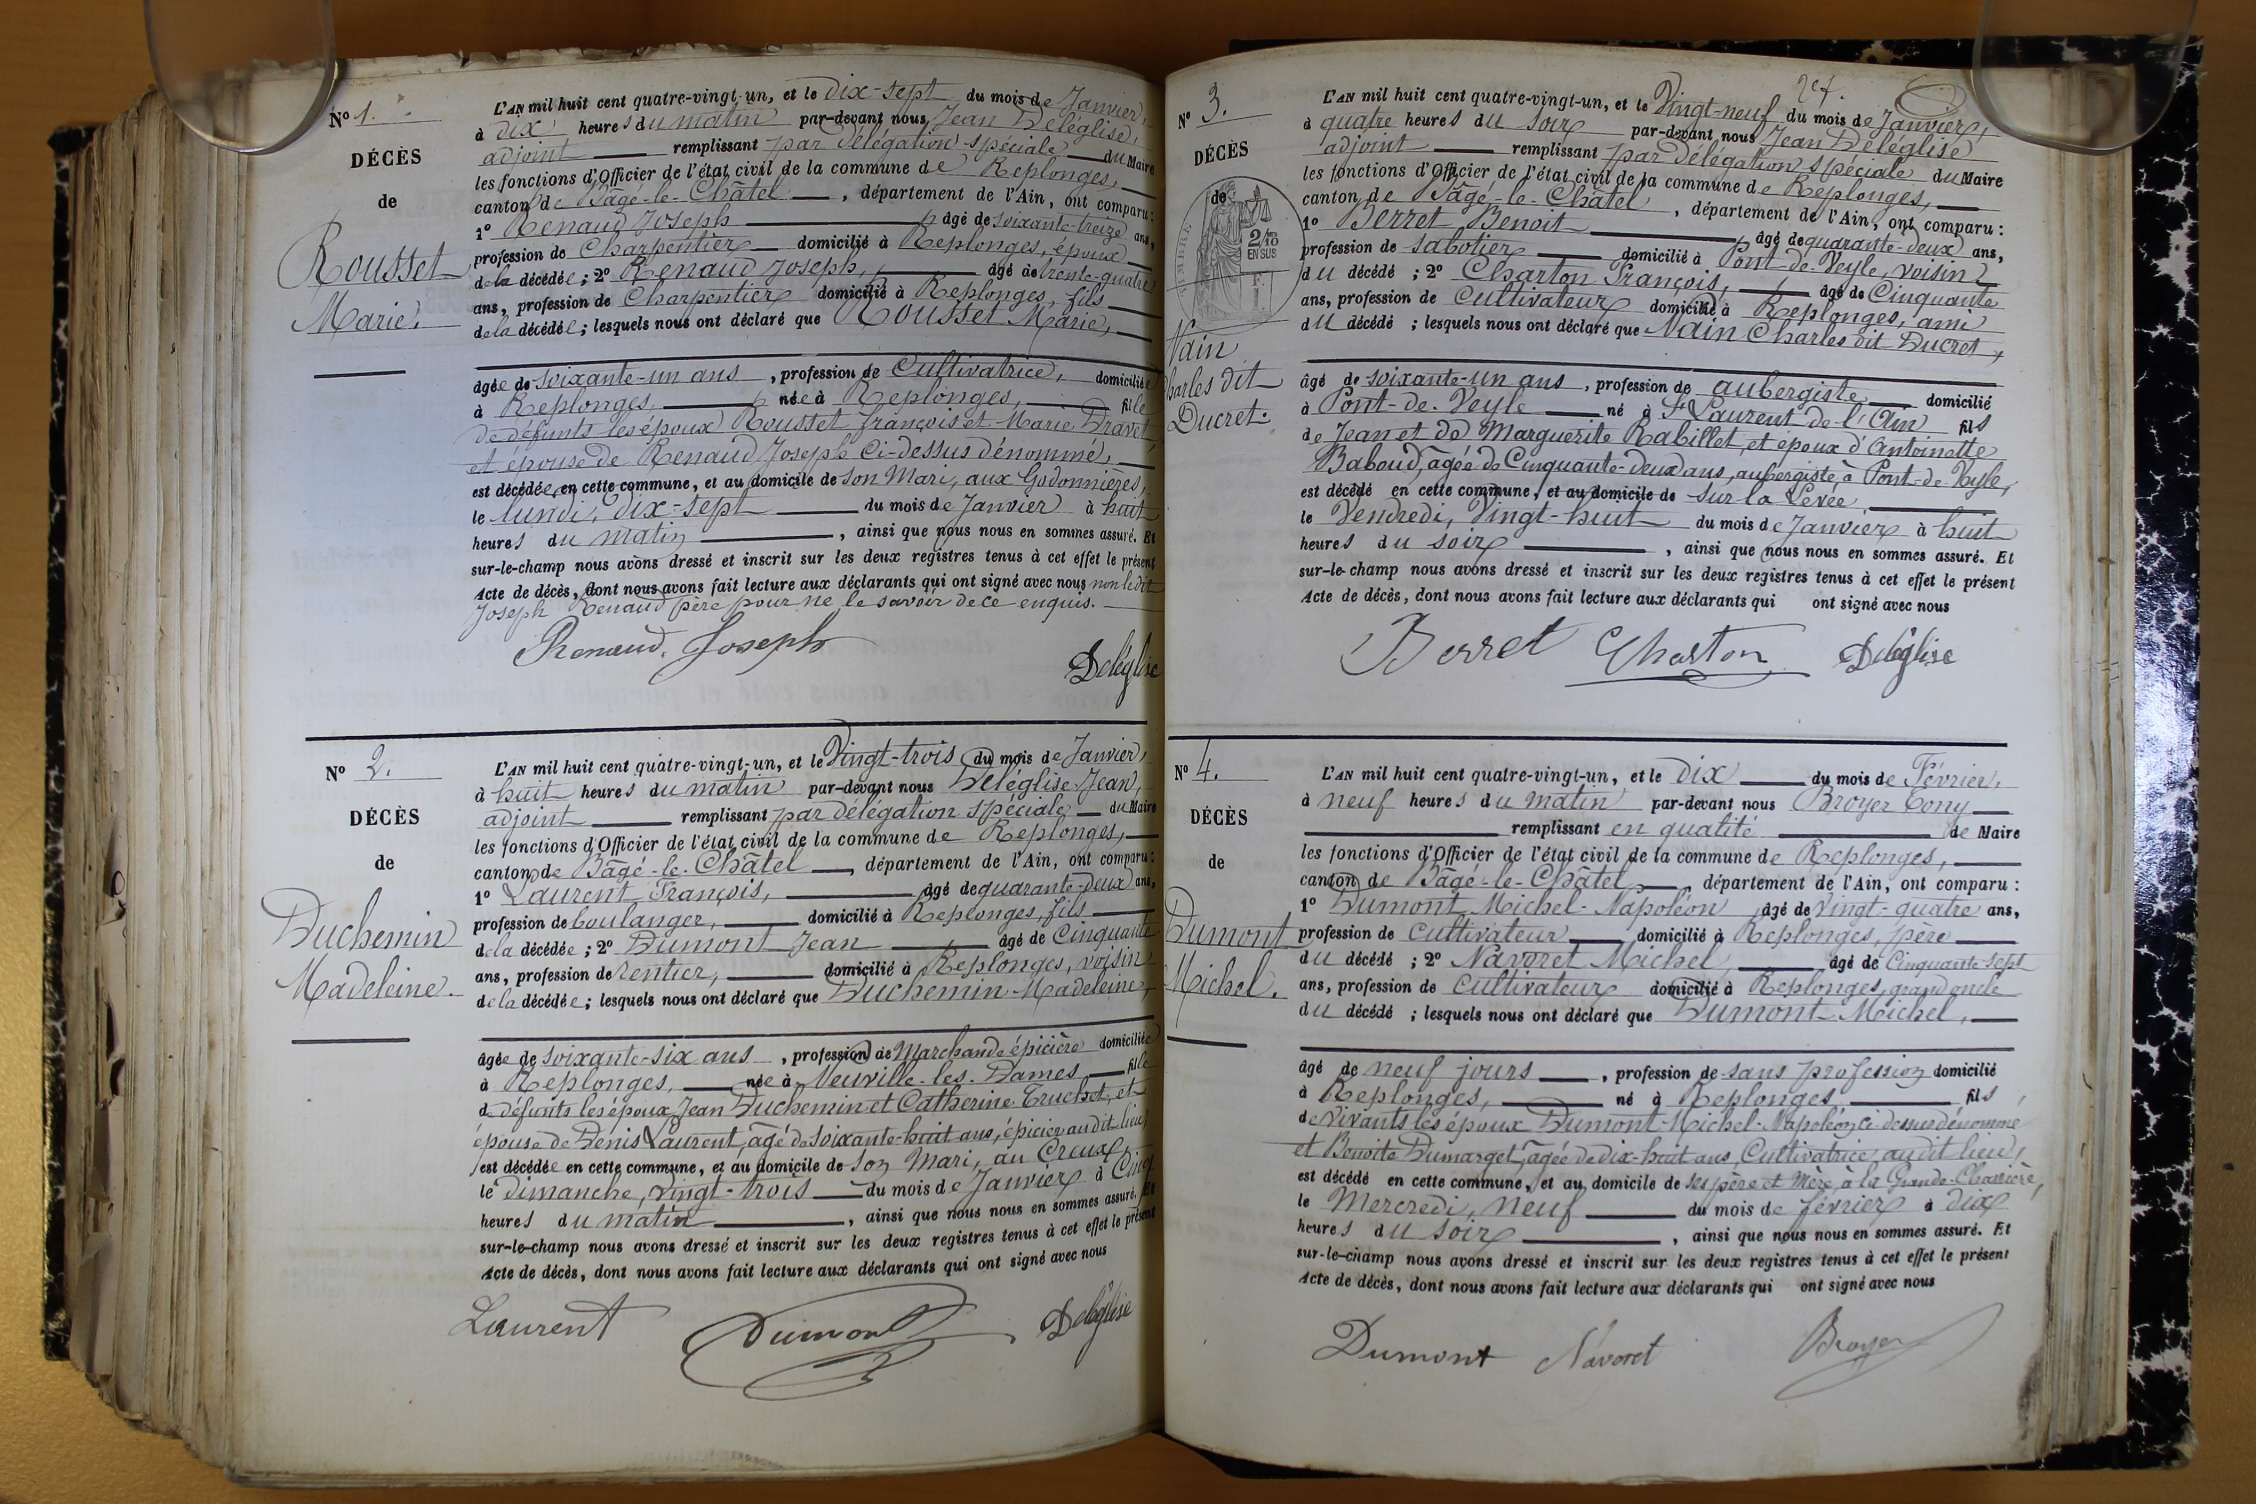 Nº 1.
DÉCÈS
de
Rousset
Marie.
L'AN mil huit cent quatre-vingt-un, et le dix-sept du mois de Janvier,
à dix heures du matin par-devant nous Jean Deléglise,
adjoint remplissant par délégation spéciale du Maire
les fonctions d'Officier de l'état civil de la commune de Replonges,
canton de Bâgé-le-Châtel, département de l'Ain, ont comparu :
1º Renaud Joseph âgé de soixante-treize ans,
profession de Charpentier domicilié à Replonges, époux
de la décédée ; 2º Renaud Joseph, âgé de trente-quatre
ans, profession de Charpentier domicilié à Replonges, fils
de la décédée ; lesquels nous ont déclaré que Rousset Marie,
âgée de soixante-un ans, profession de Cultivatrice, domiciliée
à Replonges, née à Replonges, fille
de défunts les époux Rousset françois et Marie Dravet
et épouse de Renaud Joseph Ci-dessus dénommé,
est décédée en cette commune, et au domicile de son Mari, aux Godonnières,
le lundi, dix-sept du mois de Janvier à huit
heures du matin, ainsi que nous nous en sommes assuré. Et
sur-le-champ nous avons dressé et inscrit sur les deux registres tenus à cet effet le présent
Acte de décès, dont nous avons fait lecture aux déclarants qui ont signé avec nous non ledit
Joseph Renaud père pour ne le savoir de ce enquis.
Renaud. Joseph
Deléglise
Nº 2.
DÉCÈS
de
Duchemin
Madeleine.
L'AN mil huit cent quatre-vingt-un, et le Vingt-trois du mois de Janvier,
à huit heures du matin par-devant nous Deléglise Jean,
adjoint remplissant par délégation spéciale du Maire
les fonctions d'Officier de l'état civil de la commune de Replonges,
canton de Bâgé-le-Châtel, département de l'Ain, ont comparu :
1º Laurent François, âgé de quarante-deux ans,
profession de boulanger, domicilié à Replonges, fils
de la décédée ; 2º Dumont Jean âgé de Cinquante
ans, profession de rentier, domicilié à Replonges, voisin
de la décédée ; lesquels nous ont déclaré que Duchemin Madeleine,
âgée de soixante-six ans, profession de Marchande épicière domiciliée
à Replonges, née à Neuville-les-Dames fille
de défunts les époux Jean Duchemin et Catherine Truchet, et
épouse de Denis Laurent, âgé de soixante-huit ans, épicier audit lieu,
est décédée en cette commune, et au domicile de son Mari, au Creux,
le dimanche, vingt-trois du mois de Janvier à Cinq
heures du matin, ainsi que nous nous en sommes assuré. Et
sur-le-champ nous avons dressé et inscrit sur les deux registres tenus à cet effet le présent
Acte de décès, dont nous avons fait lecture aux déclarants qui ont signé avec nous
Laurent Dumont Deléglise
Nº 3.
DÉCÈS
de
TIMBRE
2/10
EN SUS
Nain
harles dit
Ducret.
L'AN mil huit cent quatre-vingt-un, et le Vingt-neuf du mois de Janvier,
à quatre heures du soir par-devant nous Jean Deléglise
adjoint remplissant par délégation spéciale du Maire
les fonctions d'Officier de l'état civil de la commune de Replonges,
canton de Bâgé-le-Châtel, département de l'Ain, ont comparu :
1º Berret Benoit âgé de quarante-deux ans,
profession de sabotier domicilié à Pont-de-Veyle, voisin
du décédé ; 2º Charton François, âgé de Cinquante
ans, profession de cultivateur domicilié à Replonges, ami
du décédé ; lesquels nous ont déclaré que Nain Charles dit Ducret,
âgé de soixante-un ans, profession de aubergiste domicilié
à Pont-de-Veyle né à St Laurent de l'Ain fils
de Jean et de Marguerite Rabillet, et époux d'Antoinette
Baboud, âgée de Cinquante-deux ans, aubergiste, à Pont-de-Veyle,
est décédé en cette commune, et au domicile de sur la Levée
le Vendredi, Vingt-huit du mois de Janvier à huit
heures du soir, ainsi que nous nous en sommes assuré. Et
sur-le-champ nous avons dressé et inscrit sur les deux registres tenus à cet effet le présent
Acte de décès, dont nous avons fait lecture aux déclarants qui ont signé avec nous
Berret Charton Deléglise
Nº 4.
DÉCÈS
de
Dumont
Michel.
L'AN mil huit cent quatre-vingt-un, et le dix du mois de Février,
à neuf heures du matin par-devant nous Broyer Tony
remplissant en qualité de Maire
les fonctions d'Officier de l'état civil de la commune de Replonges,
canton de Bâgé-le-Châtel, département de l'Ain, ont comparu :
1º Dumont Michel-Napoléon âgé de vingt-quatre ans,
profession de cultivateur domicilié à Replonges, père
du décédé ; 2º Navoret Michel, âgé de Cinquante-sept
ans, profession de cultivateur domicilié à Replonges, grand oncle
du décédé ; lesquels nous ont déclaré que Dumont Michel,
âgé de neuf jours, profession de sans profession domicilié
à Replonges, né à Replonges fils
de vivants les époux Dumont-Michel-Napoléon, ci-dessus dénommé
et Benoite Dumarget, âgée de dix-huit ans, Cultivatrice, audit lieu,
est décédé en cette commune, et au domicile de ses père et Mère, à la Grande-Charrière,
le Mercredi, neuf du mois de février à dix
heures du soir, ainsi que nous nous en sommes assuré. Et
sur-le-champ nous avons dressé et inscrit sur les deux registres tenus à cet effet le présent
Acte de décès, dont nous avons fait lecture aux déclarants qui ont signé avec nous
Dumont Navoret Broyer